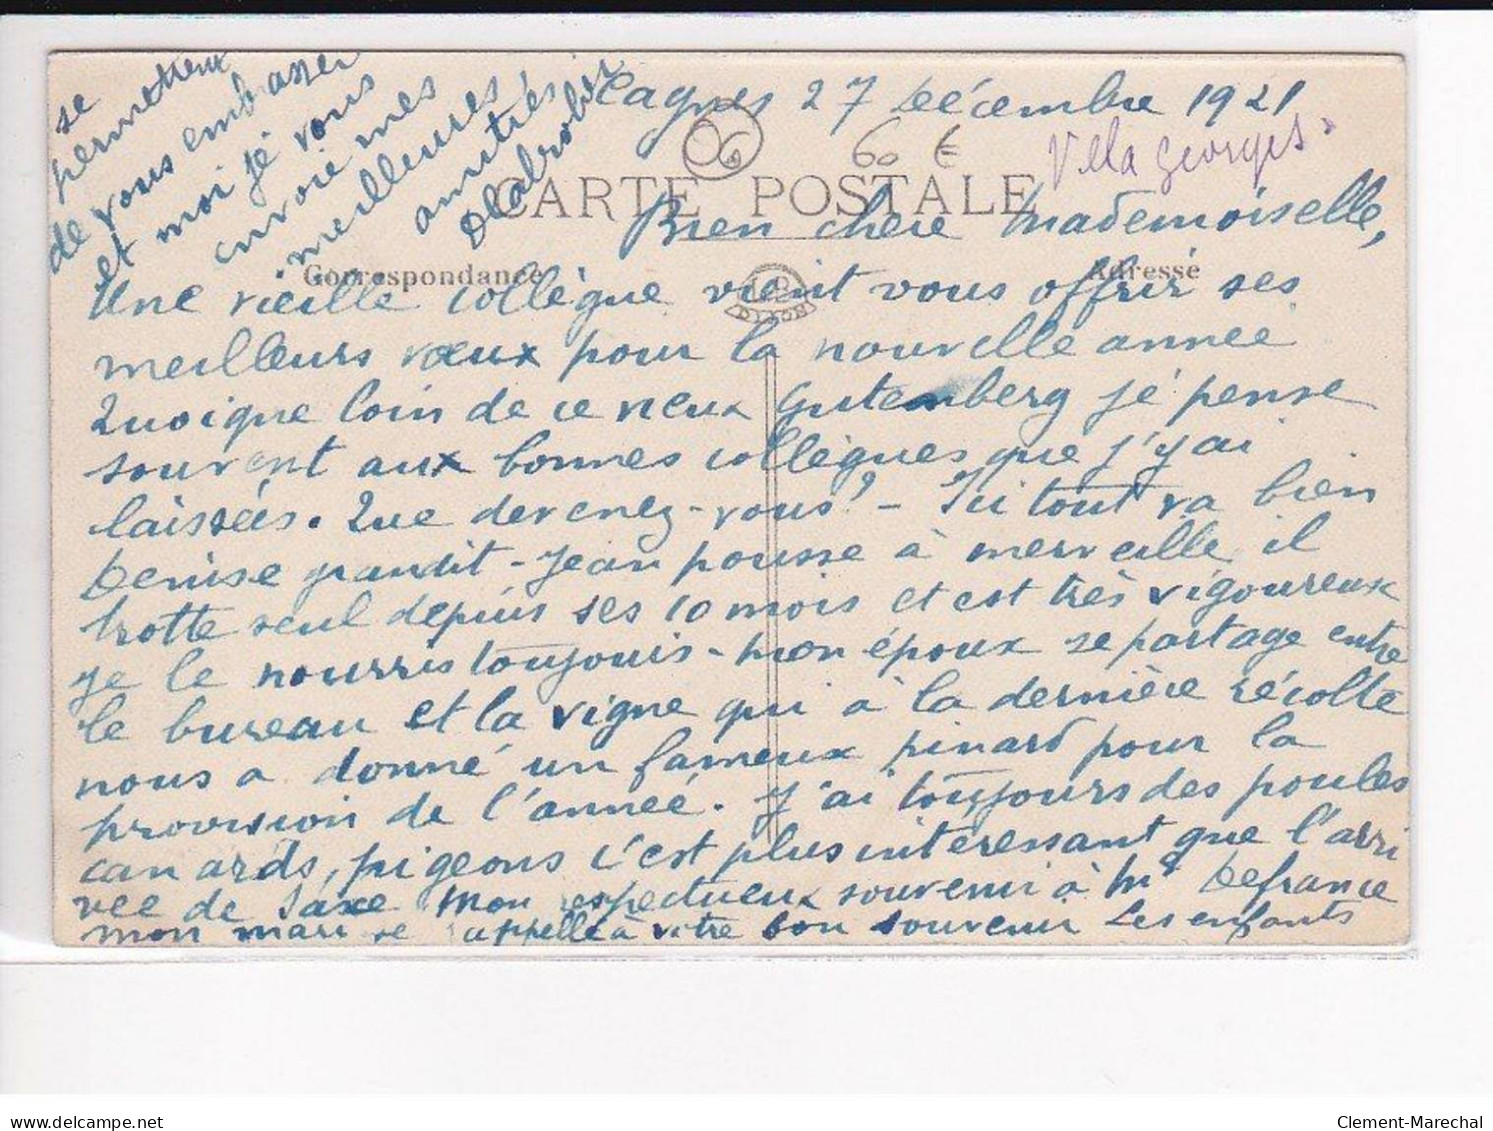 Cagnes 27 Décembre 1921
Villa Georges.
06
60 €
CARTE POSTALE
Correspondance
Adresse
DIJON
Bien chère Mademoiselle,
Une vieille collègue vient vous offrir ses
meilleurs vœux pour la nouvelle année
Quoique loin de ce vieux Gutemberg je pense
souvent aux bonnes collègues que j'y ai
laissées. Que devenez-vous? - Ici tout va bien
Denise grandit - Jean pousse à merveille il
trotte seul depuis ses 10 mois et est très vigoureux
je le nourris toujours - Mon époux se partage entre
le bureau et la vigne qui à la dernière récolte
nous a donné un fameux pinard pour la
provision de l'année. J'ai toujours des poules
canards, pigeons c'est plus intéressant que l'arri
vée de Saxe Mon respectueux souvenir à Me Defrance
mon mari se rappelle à votre bon souvenir Les enfants
se
permettent
de vous embrasser
et moi je vous
envoie mes
meilleures
amitiés
Clement-Marechal
delcampe.net